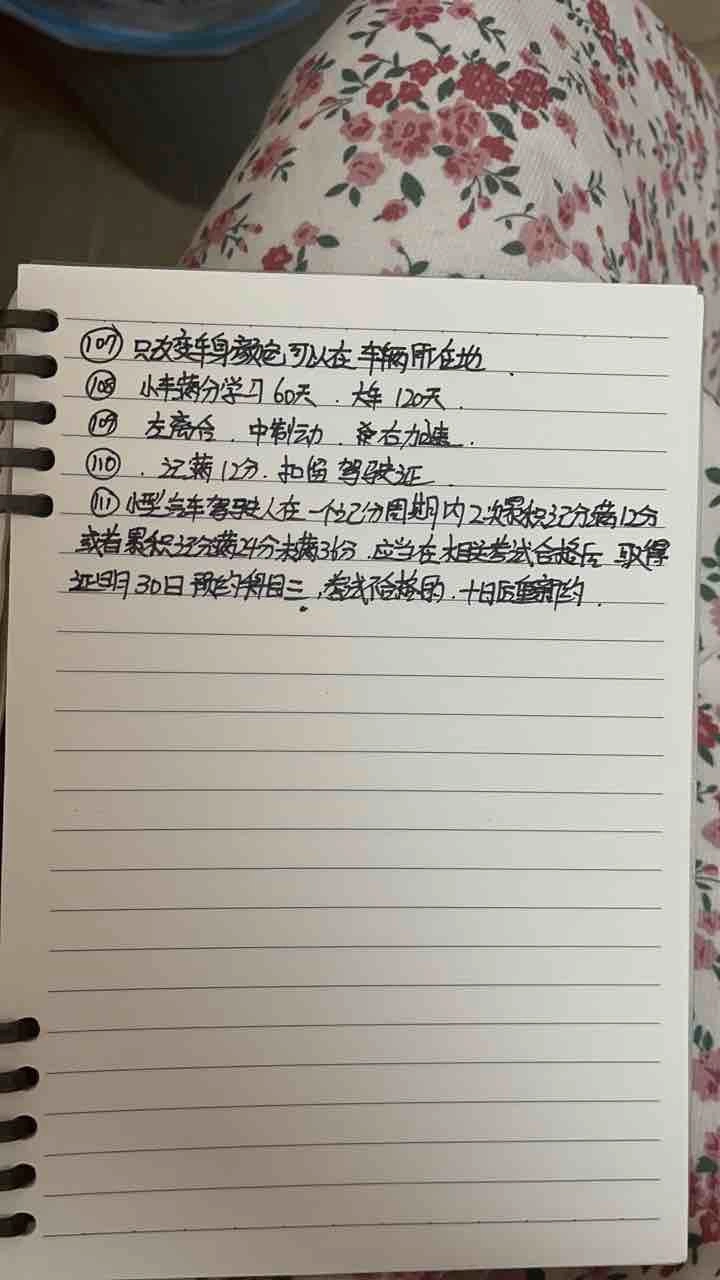 (107) 只改变车身颜色可以在 车辆所在地.
(108) 小车满分学习60天. 大车120天.
(109) 左离合. 中制动. 右加速.
(110) . 记满12分. 扣留 驾驶证.
(111) 小型汽车驾驶人在一个记分周期内2次累积记分满12分
或者累积记分满24分未满36分. 应当在相关考试合格后 取得
证明 30日 预约科目三, 考试不合格的. 十日后重新约.